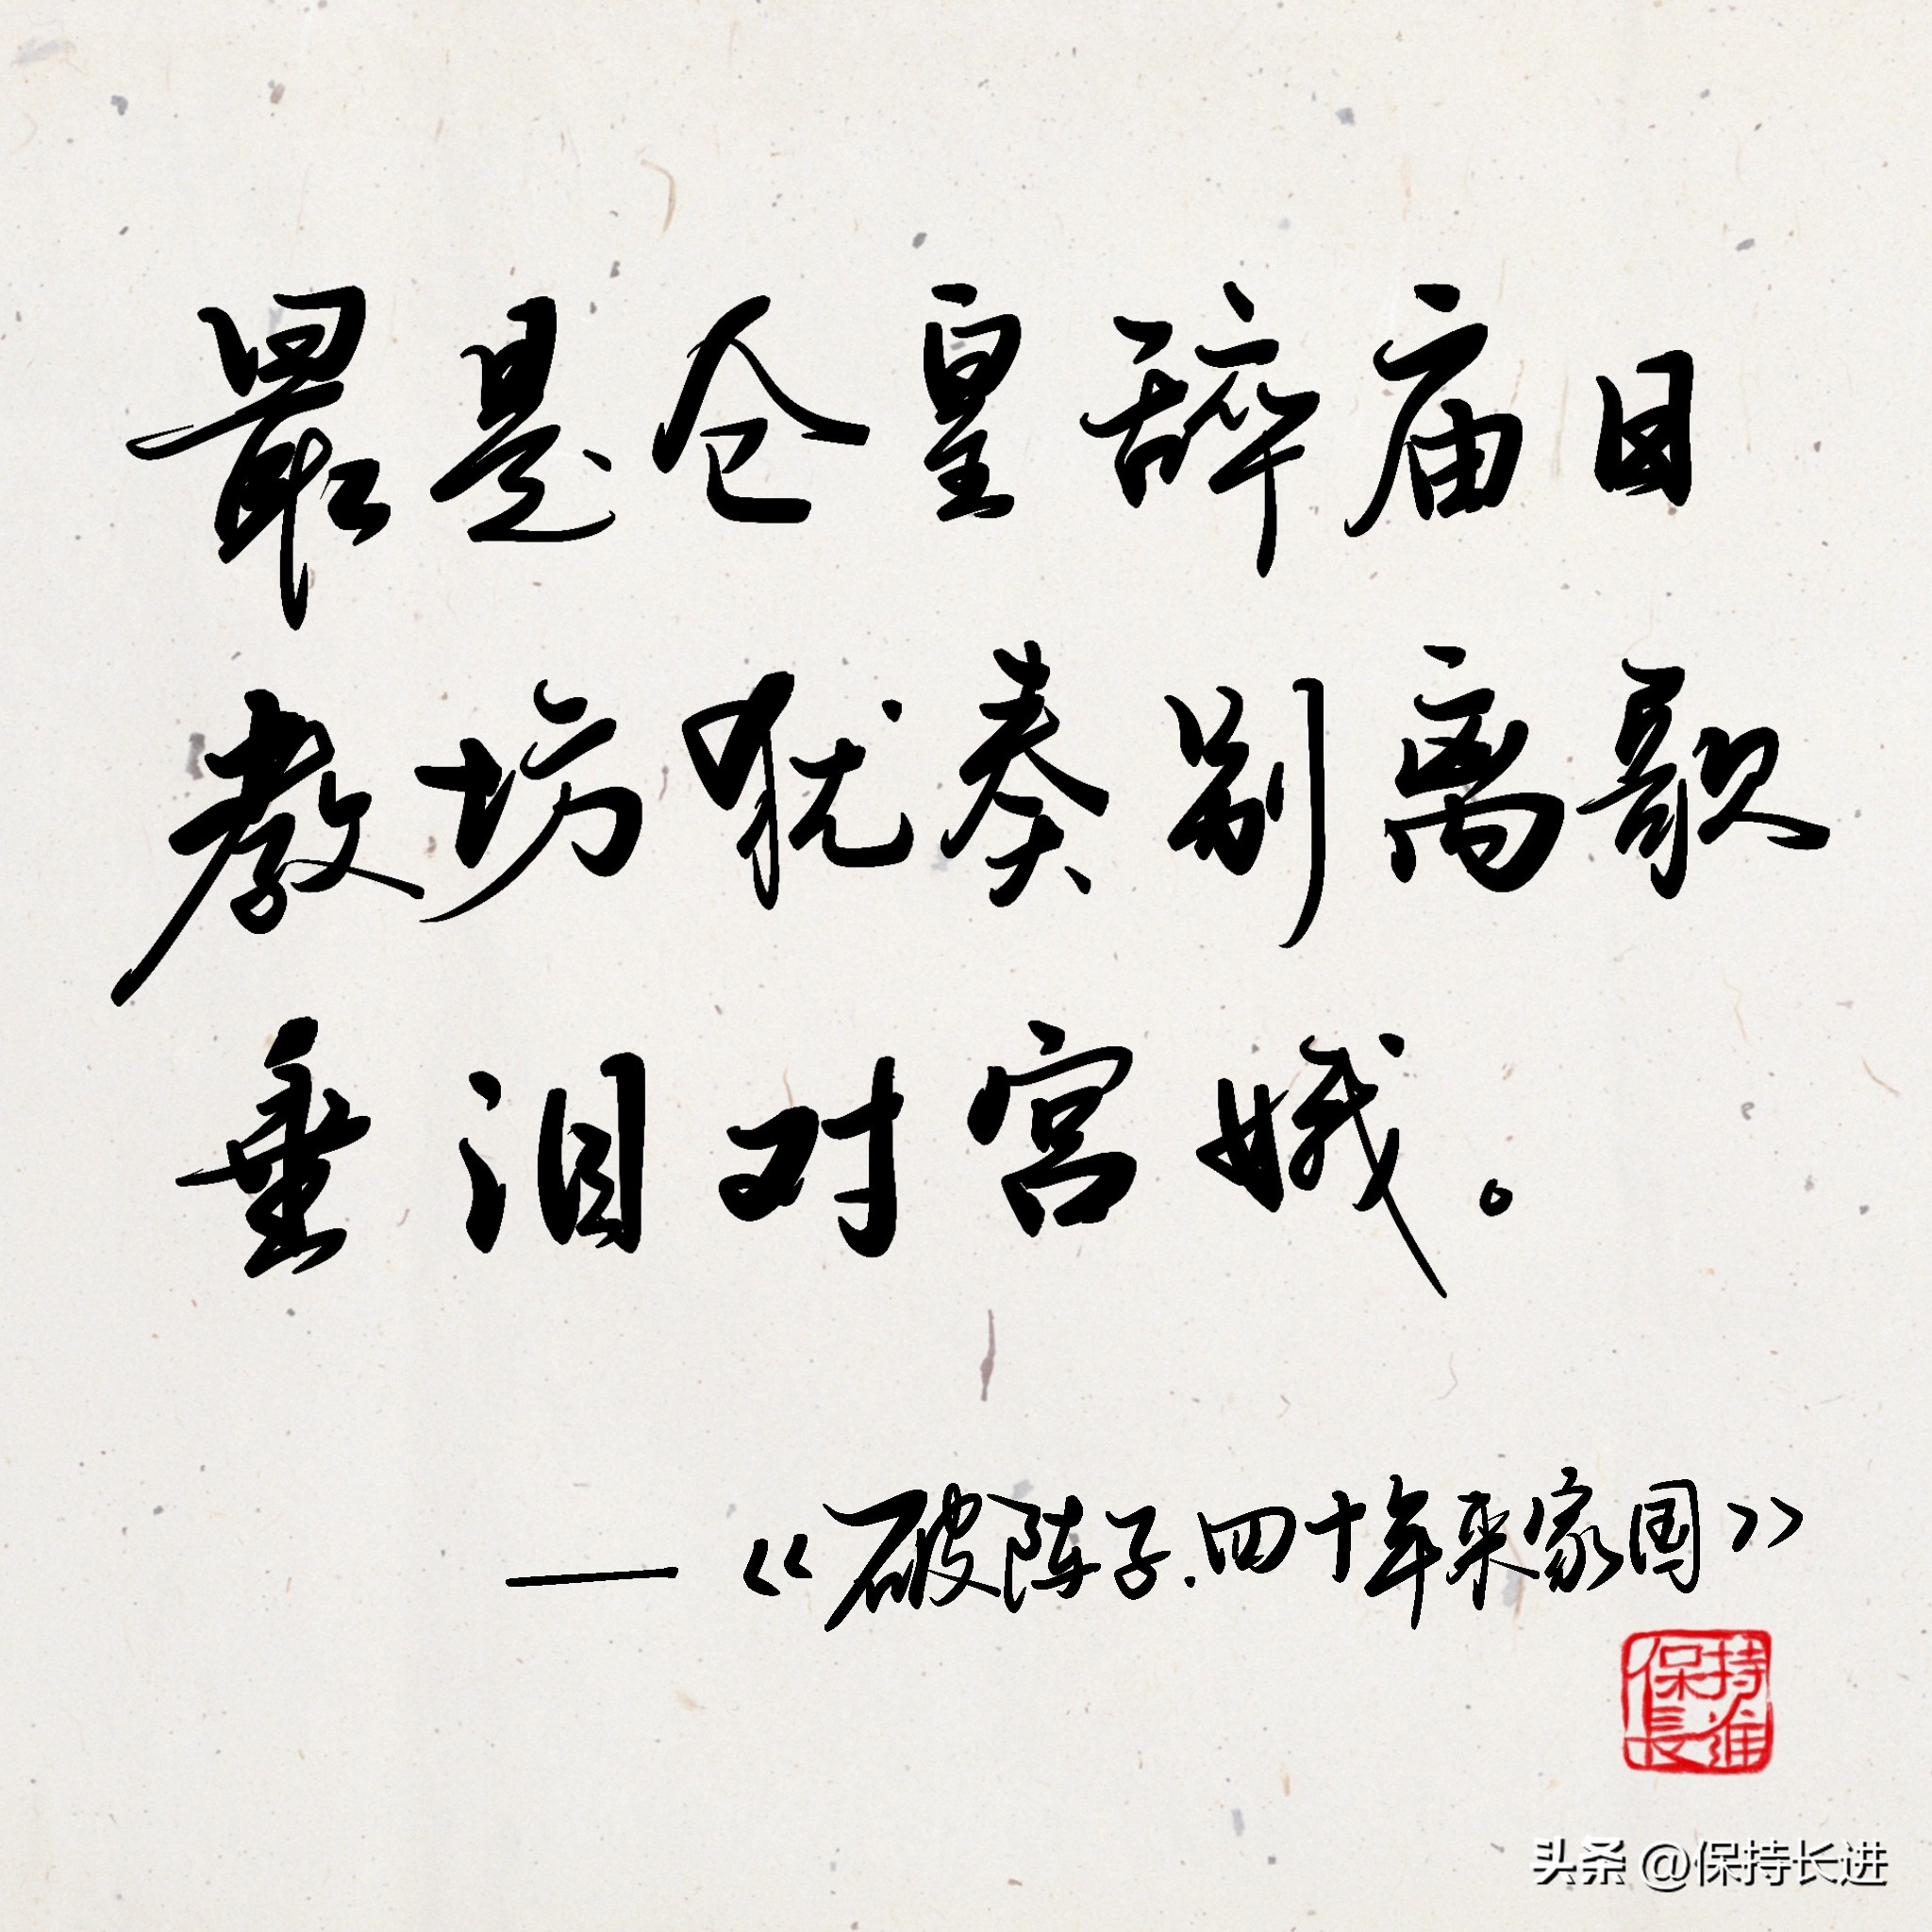 最是仓皇辞庙日
教坊犹奏别离歌
垂泪对宫娥。
—《破阵子.四十年来家国》
保持
長進
头条 @保持长进